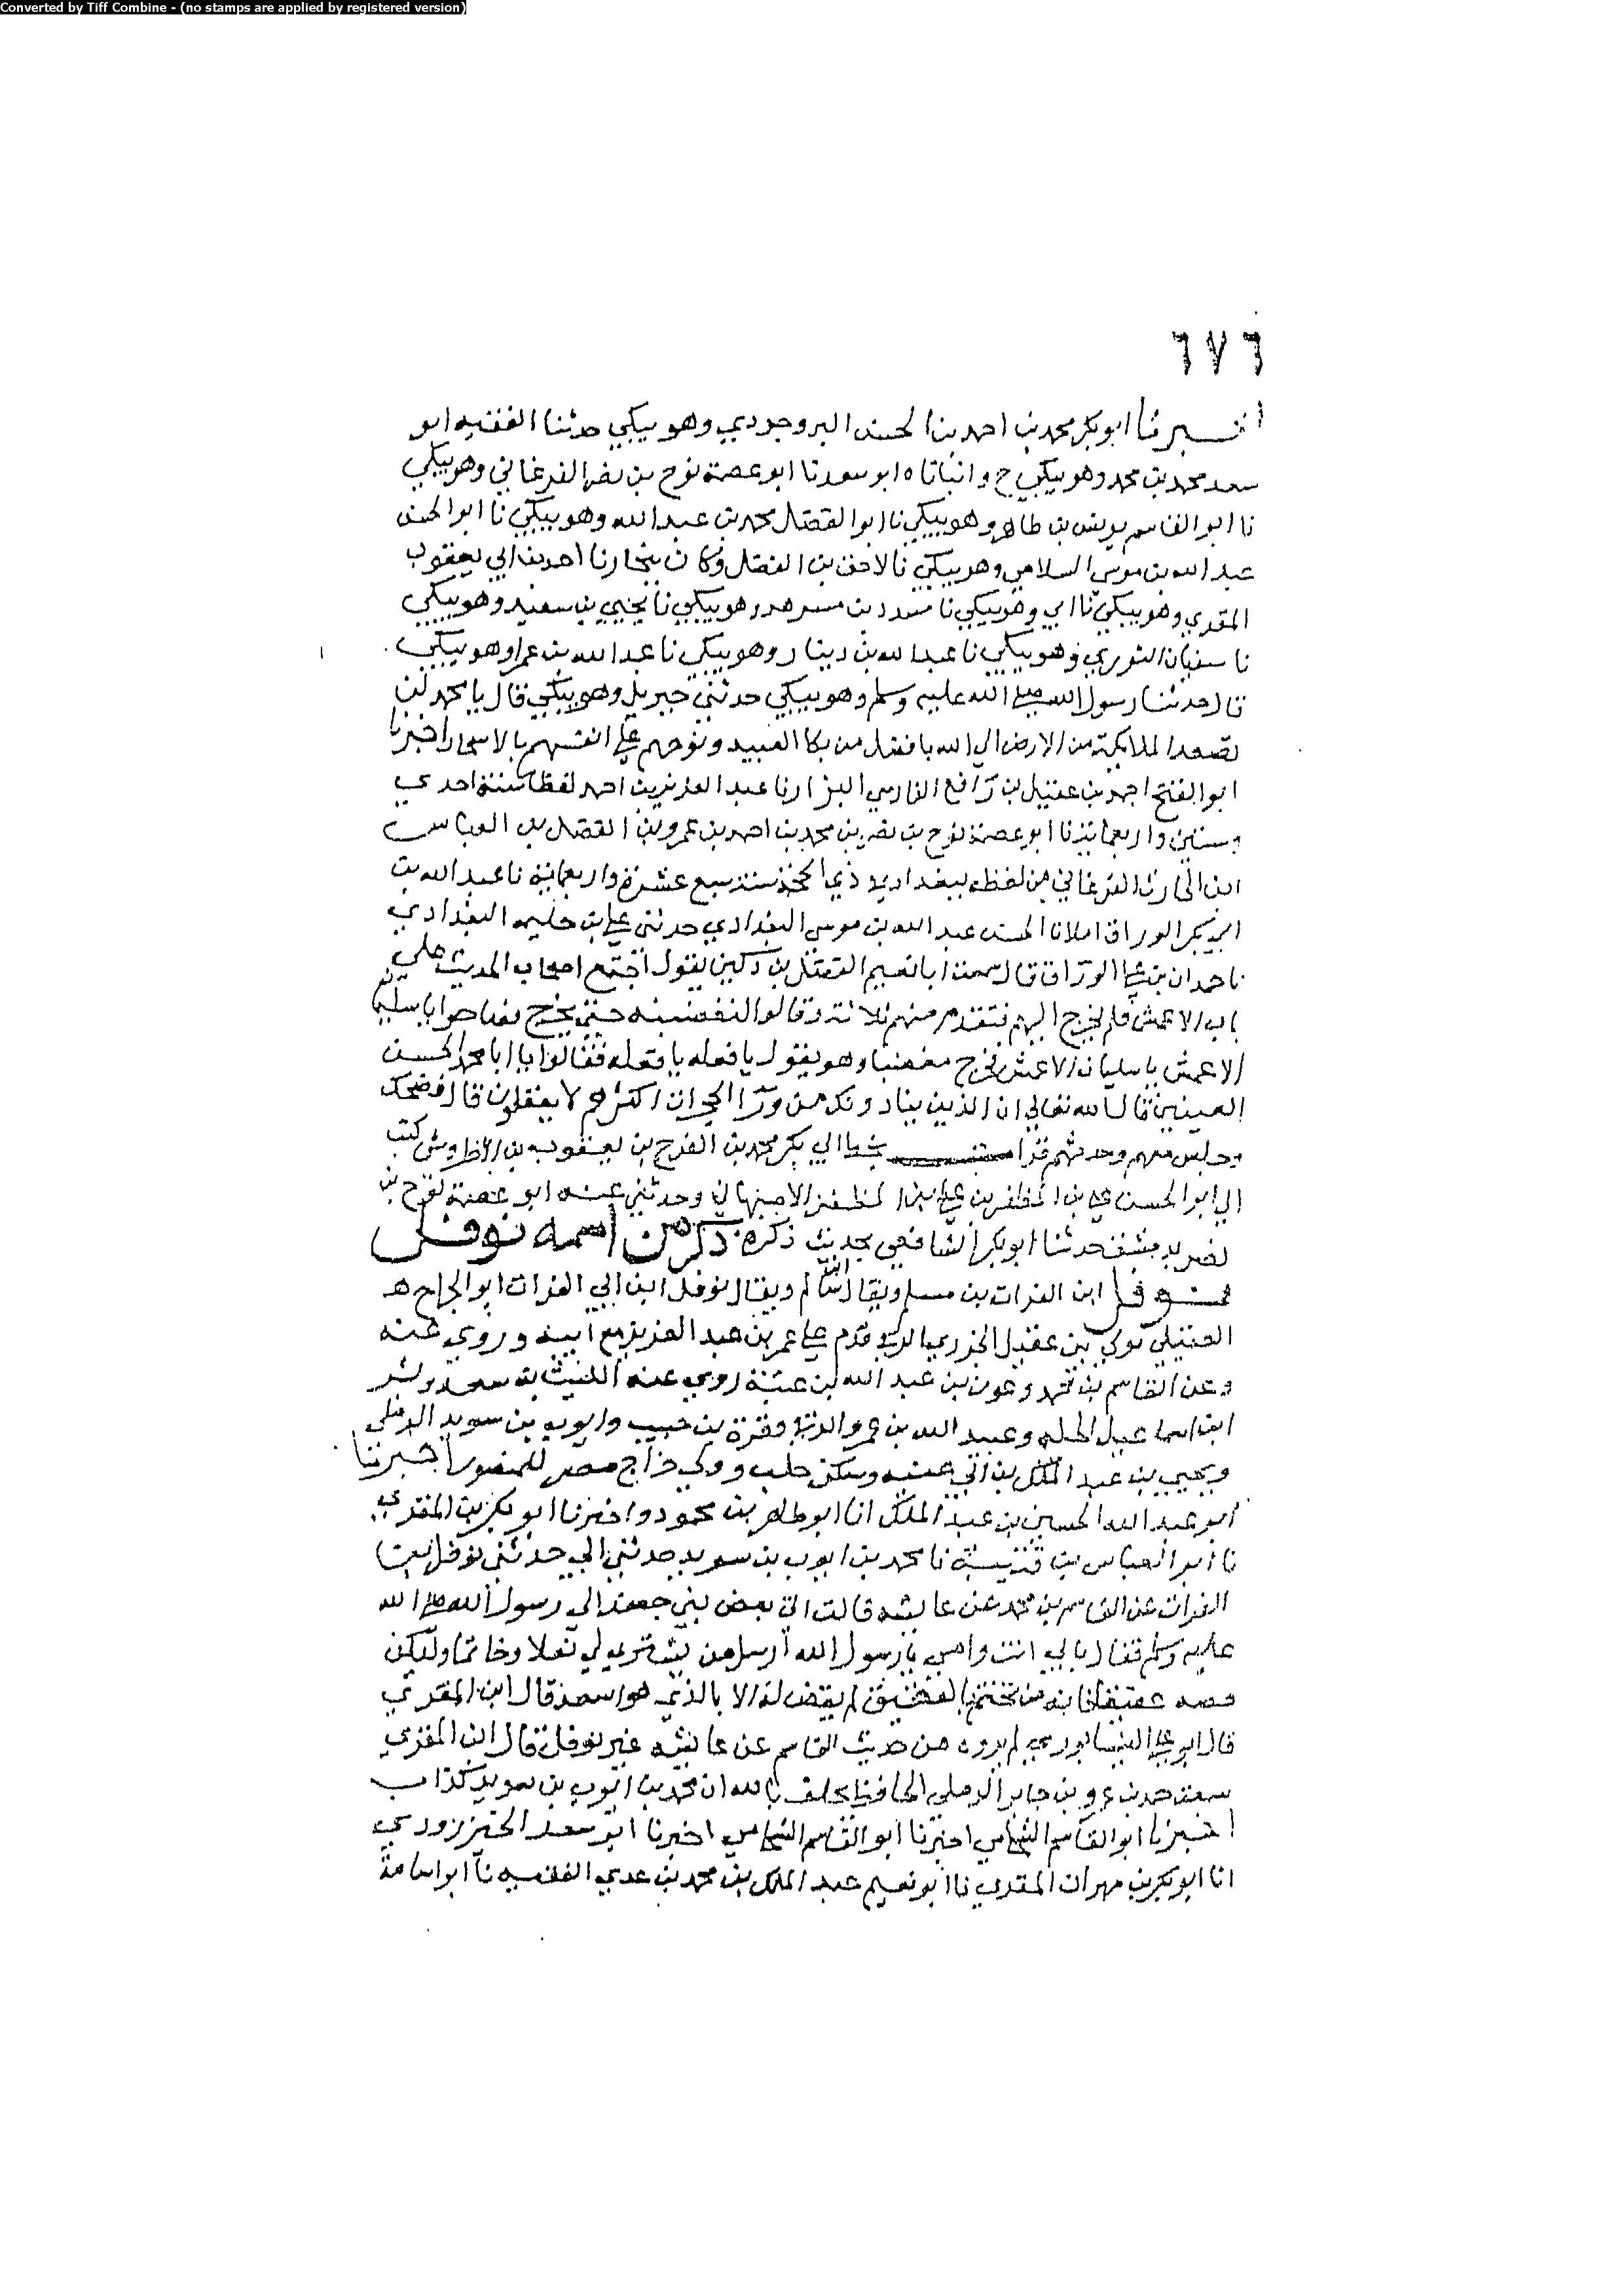 Converted by Tiff Combine - (no stamps are applied by registered version)
٦٧٦
اخبرنا ابو بكر محمد بن احمد بن الحسن البروجردي وهو يبكي حدثنا الفقيه ابو
سعد محمد بن محمد وهو يبكي ح وانباناه ابو سعد نا ابو عصمة نوح بن نصر الفرغاني وهو يبكي
نا ابو القاسم يونس بن طاهر وهو يبكي نا ابو الفضل محمد بن عبد الله وهو يبكي نا ابو الحسن
عبد الله بن موسى السلامي وهو يبكي نا لاحق بن الفضل وكان بخارنا احمد بن ابي يعقوب
المقري وهو يبكي نا ابي وهو يبكي نا مسدد بن مسرهد وهو يبكي نا يحيي بن سعيد وهو يبكي
نا سفيان الثوري وهو يبكي نا عبد الله بن دينار وهو يبكي نا عبد الله بن عمر وهو يبكي
قال حدثنا رسول الله صلى الله عليه وسلم وهو يبكي حدثني جبريل وهو يبكي قال يا محمد لن
تصعد الملايكة من الارض الى الله بافضل من بكا العبيد ونوحهم على انفسهم بالاسحار اخبرنا
ابو الفتح احمد بن عقيل بن رافع الفارسي البزار نا عبد العزيز بن احمد لفظا سنة احدي
وستين واربعماية نا ابو عصمة نوح بن نصر بن محمد بن احمد بن عمرو بن الفضل بن العباس
ابن الحارث الفرغاني من لفظه ببغداد في ذي الحجة سنة سبع عشرة واربعماية نا عبد الله بن
ابي بكر الوراق املانا الحسن عبد الله بن موسى البغدادي حدثني علي بن حليمه البغدادي
نا حمدان بن علي الوراق قال سمعت ابا نعيم الفضل بن دكين يقول اجتمع اصحاب الحديث على
باب الاعمش فلم يخرج اليهم فتقدم منهم ثلاثة وقالوا لنغضبنه حتى يخرج فصاحوا يا سليم
الاعمش يا سليمان الاعمش فخرج مغضبا وهو يقول يا فعله يا فعله فقالوا يا ابا محمد الحسن
العينين قال الله تعالى ان الذين ينادونك من ورا الحجرات اكثرهم لا يعقلون قال فضحك
وجلس معهم وحدثهم قرات بخط ابي بكر محمد بن الفرج بن يعقوب بن الاطروش كتب
الي ابو الحسن علي بن المظفر بن علي بن المظفر الاصبهاني وحدثني عنه ابو عصمة نوح بن
نصر بدمشق حدثنا ابو بكر الشافعي بحديث ذكره ذكر من اسمه نوفل
نوفل ابن الفرات بن مسلم ويقال ابن سالم ويقال نوفل ابن ابي الفرات ابو الجراح
العقيلي مولى بني عقيل الجزري الرقي قدم على عمر بن عبد العزيز مع ابيه وروي عنه
وعن القاسم بن محمد وعون بن عبد الله بن عتبة روي عنه الليث بن سعد وبشر
ابن اسماعيل الحلبي وعبيد الله بن عمرو الرقي وقرة بن حبيب وايوب بن سويد الرملي
ويحيي بن عبد الملك بن ابي غنيه وسكن حلب وولي خراج مصر للمنصور اخبرنا
ابو عبد الله الحسين بن عبد الملك انا ابو طاهر بن محمود واخبرنا ابو بكر بن المقري
نا ابو العباس بن قتيبة نا محمد بن ايوب بن سويد حدثني ابي حدثني نوفل بن
الفرات عن القاسم بن محمد عن عايشه قالت اتى بعض بني جعفر الى رسول الله صلى الله
عليه وسلم فقال بابي انت وامي يا رسول الله ارسل من يشتري لي نعلا وخاتما وليكن
فصه عقيقا فانه من تختم بالعقيق لم يقض له الا بالذي هو اسعد قال ابن المقري
قال ابو علي النيسابوري لم يروه من حديث القاسم عن عايشه غير نوفل قال ابن المقري
سمعت حمد بن عمرو بن جابر الرملي الحافظ يحلف بالله ان محمد بن ايوب بن سويد كذاب
اخبرنا ابو القاسم الشحامي اخبرنا ابو القاسم الشحامي اخبرنا ابو سعد الجنزرودي
انا ابو بكر بن مهران المقري نا ابو نعيم عبد الملك بن محمد بن عدي الفقيه نا ابو اسامة